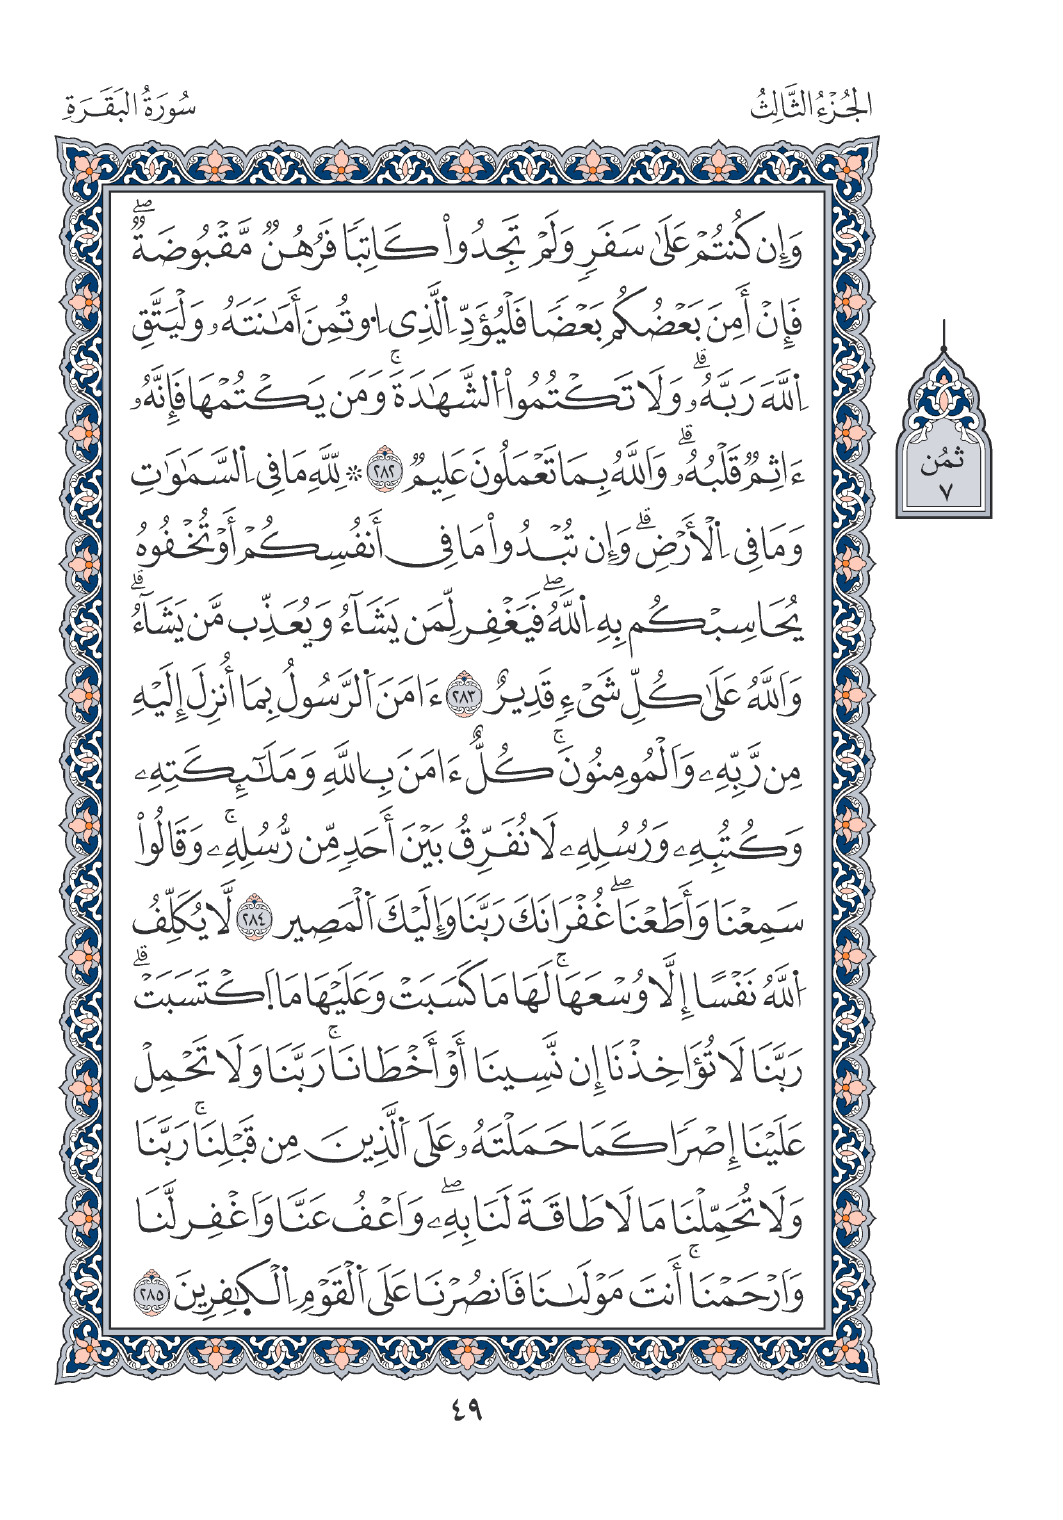 الجُزْءُ الثَّالِثُ
سُورَةُ البَقَرَةِ
وَإِن كُنتُمْ عَلَىٰ سَفَرٖ وَلَمْ تَجِدُوا۟ كَاتِبٗا فَرُهُنٞ مَّقْبُوضَةٞۖ
فَإِنْ أَمِنَ بَعْضُكُم بَعْضٗا فَلْيُؤَدِّ اِ۬لَّذِي اِ۟وتُمِنَ أَمَٰنَتَهُۥ وَلْيَتَّقِ
اِ۬للَّهَ رَبَّهُۥۗ وَلَا تَكْتُمُوا۟ اُ۬لشَّهَٰدَةَۚ وَمَن يَكْتُمْهَا فَإِنَّهُۥ
ءَاثِمٞ قَلْبُهُۥۗ وَاَللَّهُ بِمَا تَعْمَلُونَ عَلِيمٞ ٢٨٢ ۞ لِّلهِ مَا فِي اِ۬لسَّمَٰوَٰتِ
وَمَا فِي اِ۬لْأَرْضِۗ وَإِن تُبْدُوا۟ مَا فِي أَنفُسِكُمْ أَوْ تُخْفُوهُ
يُحَاسِبْكُم بِهِ اِ۬للَّهُۖ فَيَغْفِر لِّمَن يَشَآءُ وَيُعَذِّب مَّن يَشَآءُۗ
وَاَللَّهُ عَلَىٰ كُلِّ شَيْءٖ قَدِيرٌ ٢٨٣ ءَامَنَ اَ۬لرَّسُولُ بِمَا أُنزِلَ إِلَيْهِ
مِن رَّبِّهِۦ وَاَلْمُومِنُونَۚ كُلٌّ ءَامَنَ بِاللَّهِ وَمَلَٰٓئِكَتِهِۦ
وَكُتُبِهِۦ وَرُسُلِهِۦ لَا نُفَرِّقُ بَيْنَ أَحَدٖ مِّن رُّسُلِهِۦۚ وَقَالُوا۟
سَمِعْنَا وَأَطَعْنَاۖ غُفْرَانَكَ رَبَّنَا وَإِلَيْكَ اَ۬لْمَصِير ٢٨٤ لَّا يُكَلِّفُ
اُ۬للَّهُ نَفْسًا إِلَّا وُسْعَهَاۚ لَهَا مَا كَسَبَتْ وَعَلَيْهَا مَا اَ۪كْتَسَبَتْۗ
رَبَّنَا لَا تُؤَاخِذْنَا إِن نَّسِينَا أَوْ أَخْطَانَاۚ رَبَّنَا وَلَا تَحْمِلْ
عَلَيْنَا إِصْرٗا كَمَا حَمَلْتَهُۥ عَلَى اَ۬لَّذِينَ مِن قَبْلِنَاۚ رَبَّنَا
وَلَا تُحَمِّلْنَا مَا لَا طَاقَةَ لَنَا بِهِۦۖ وَاَعْفُ عَنَّا وَاَغْفِر لَّنَا
وَاَرْحَمْنَاۚ أَنتَ مَوْلَىٰنَا فَاَنصُرْنَا عَلَى اَ۬لْقَوْمِ اِ۬لْكَٰفِرِينَ ٢٨٥
ثُمُن
٧
٤٩